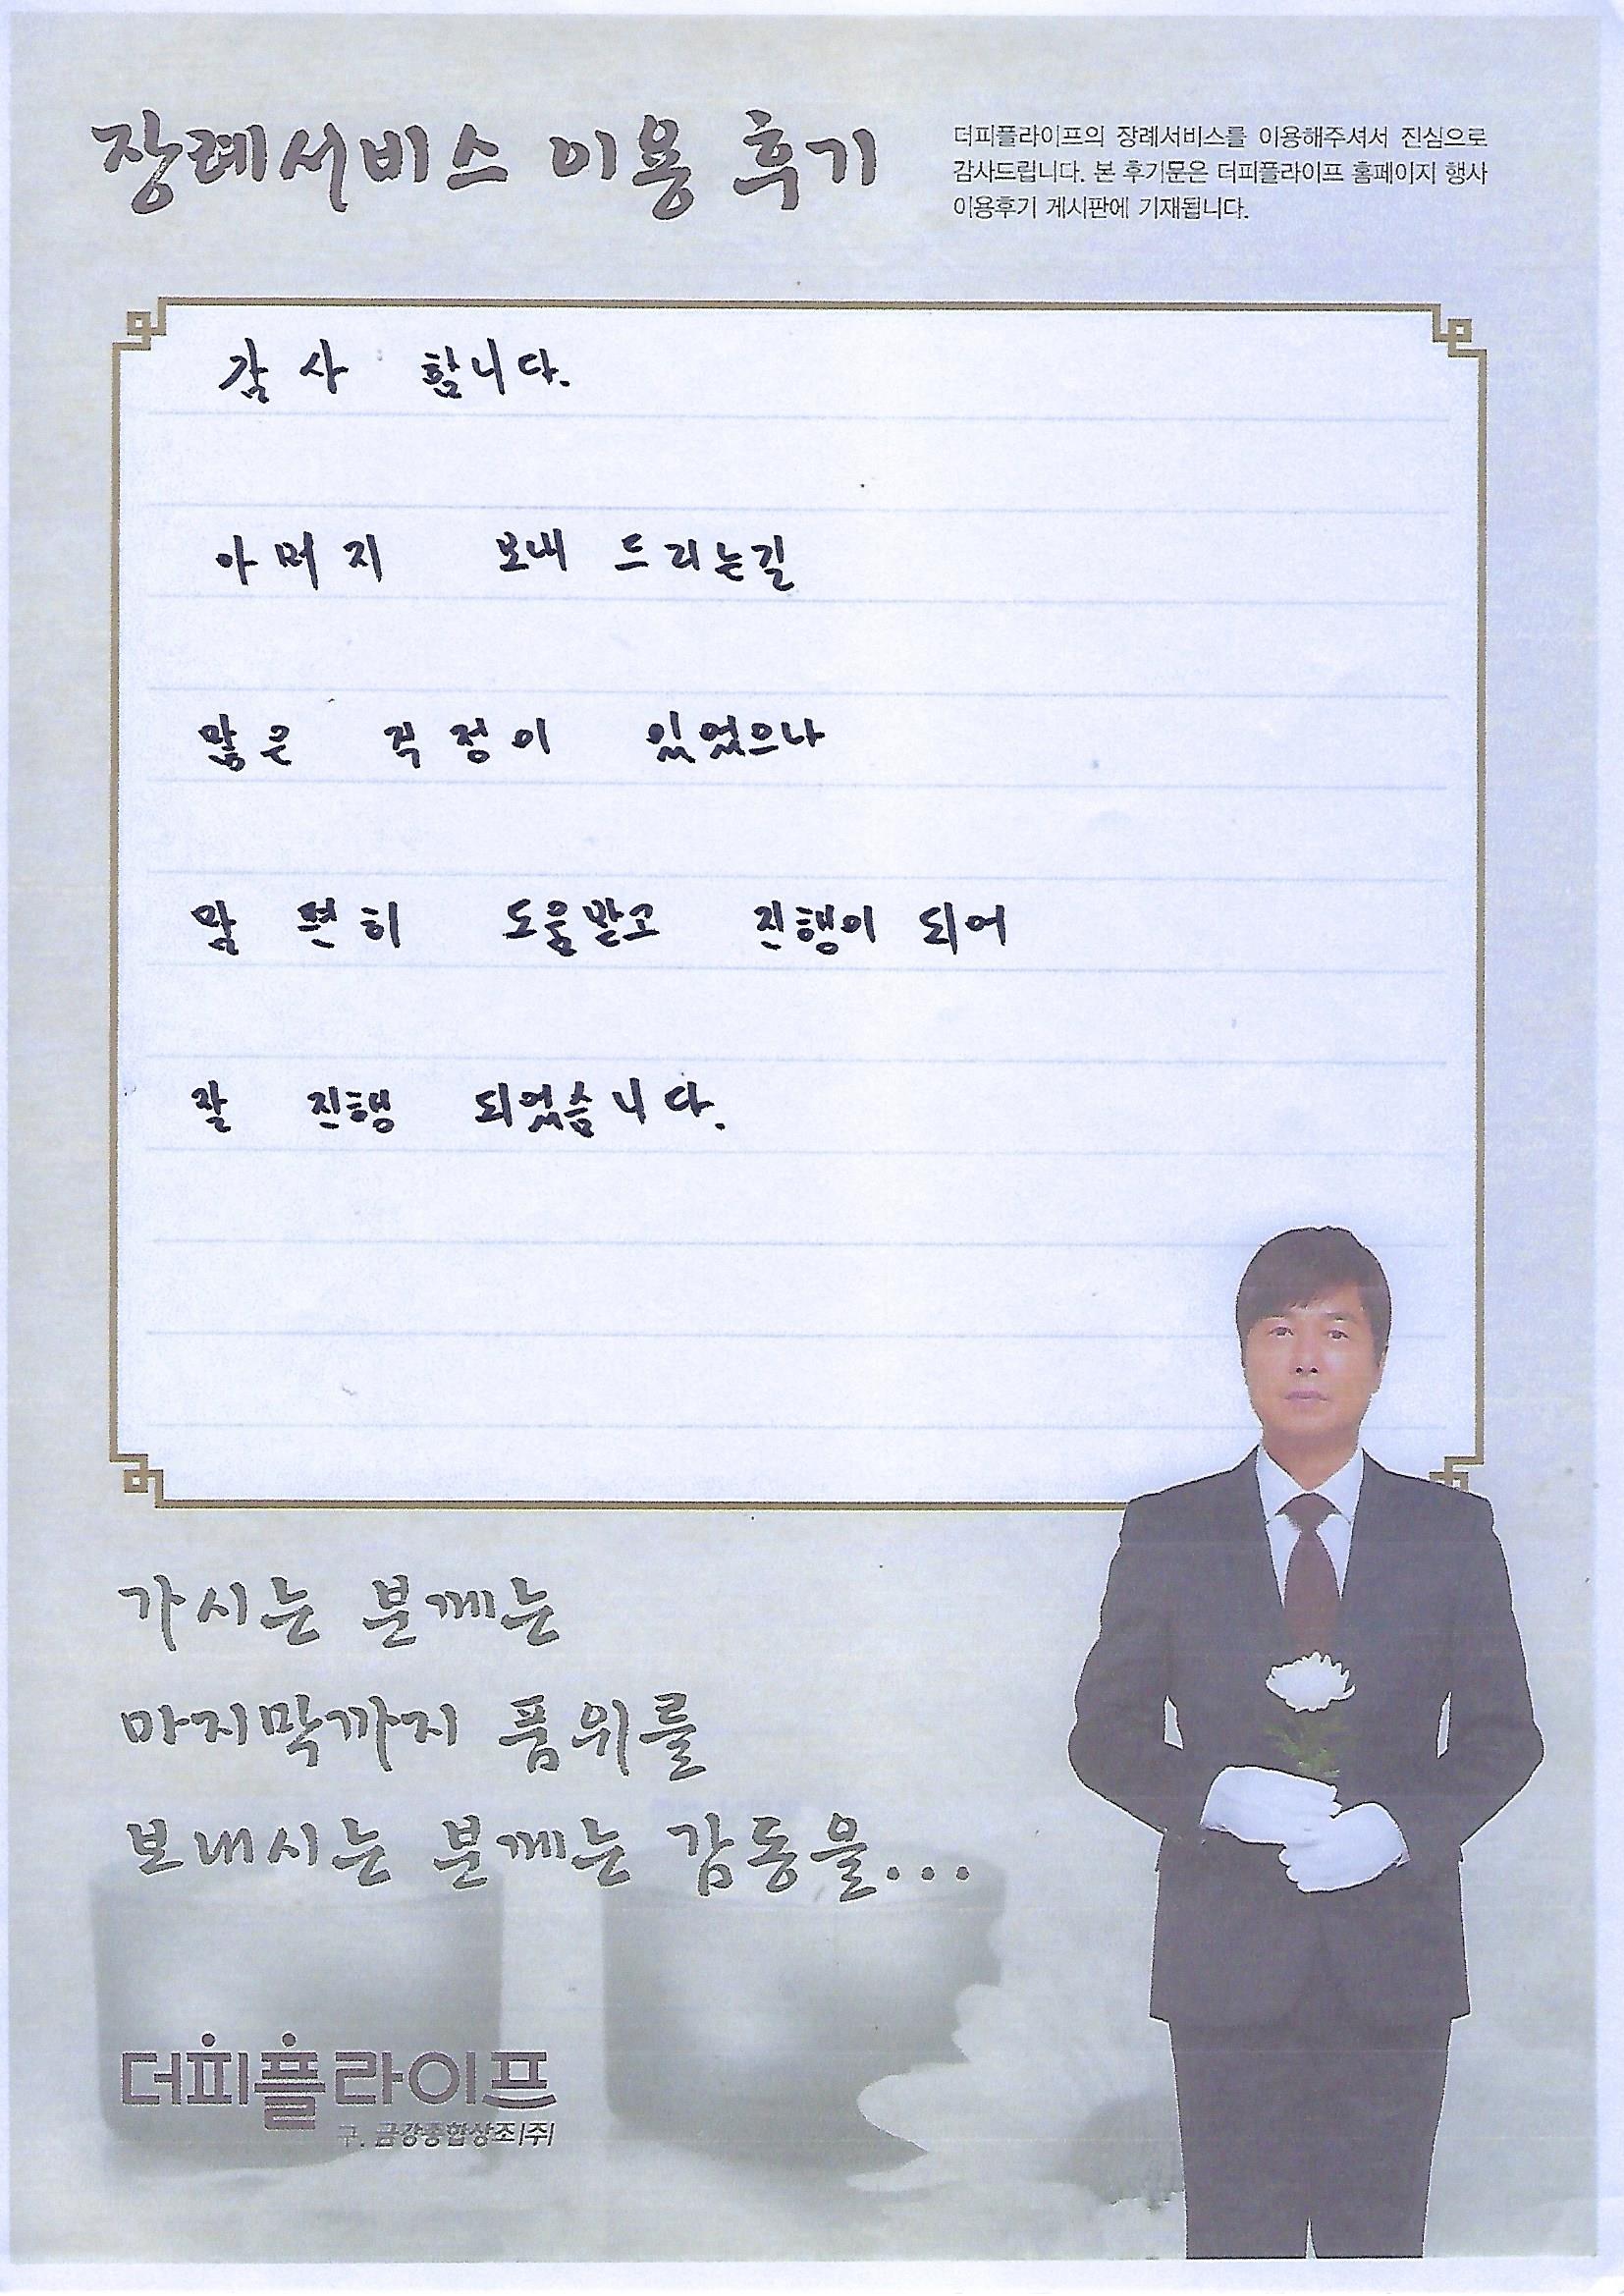 장례서비스 이용 후기
더피플라이프의 장례서비스를 이용해주셔서 진심으로
감사드립니다. 본 후기문은 더피플라이프 홈페이지 행사
이용후기 게시판에 기재됩니다.
감사 합니다.
아버지 보내 드리는길
많은 걱정이 있었으나
맘 편히 도움받고 진행이 되어
잘 진행 되었습니다.
가시는 분께는
마지막까지 품위를
보내시는 분께는 감동을...
더피플라이프
구. 금강종합상조(주)